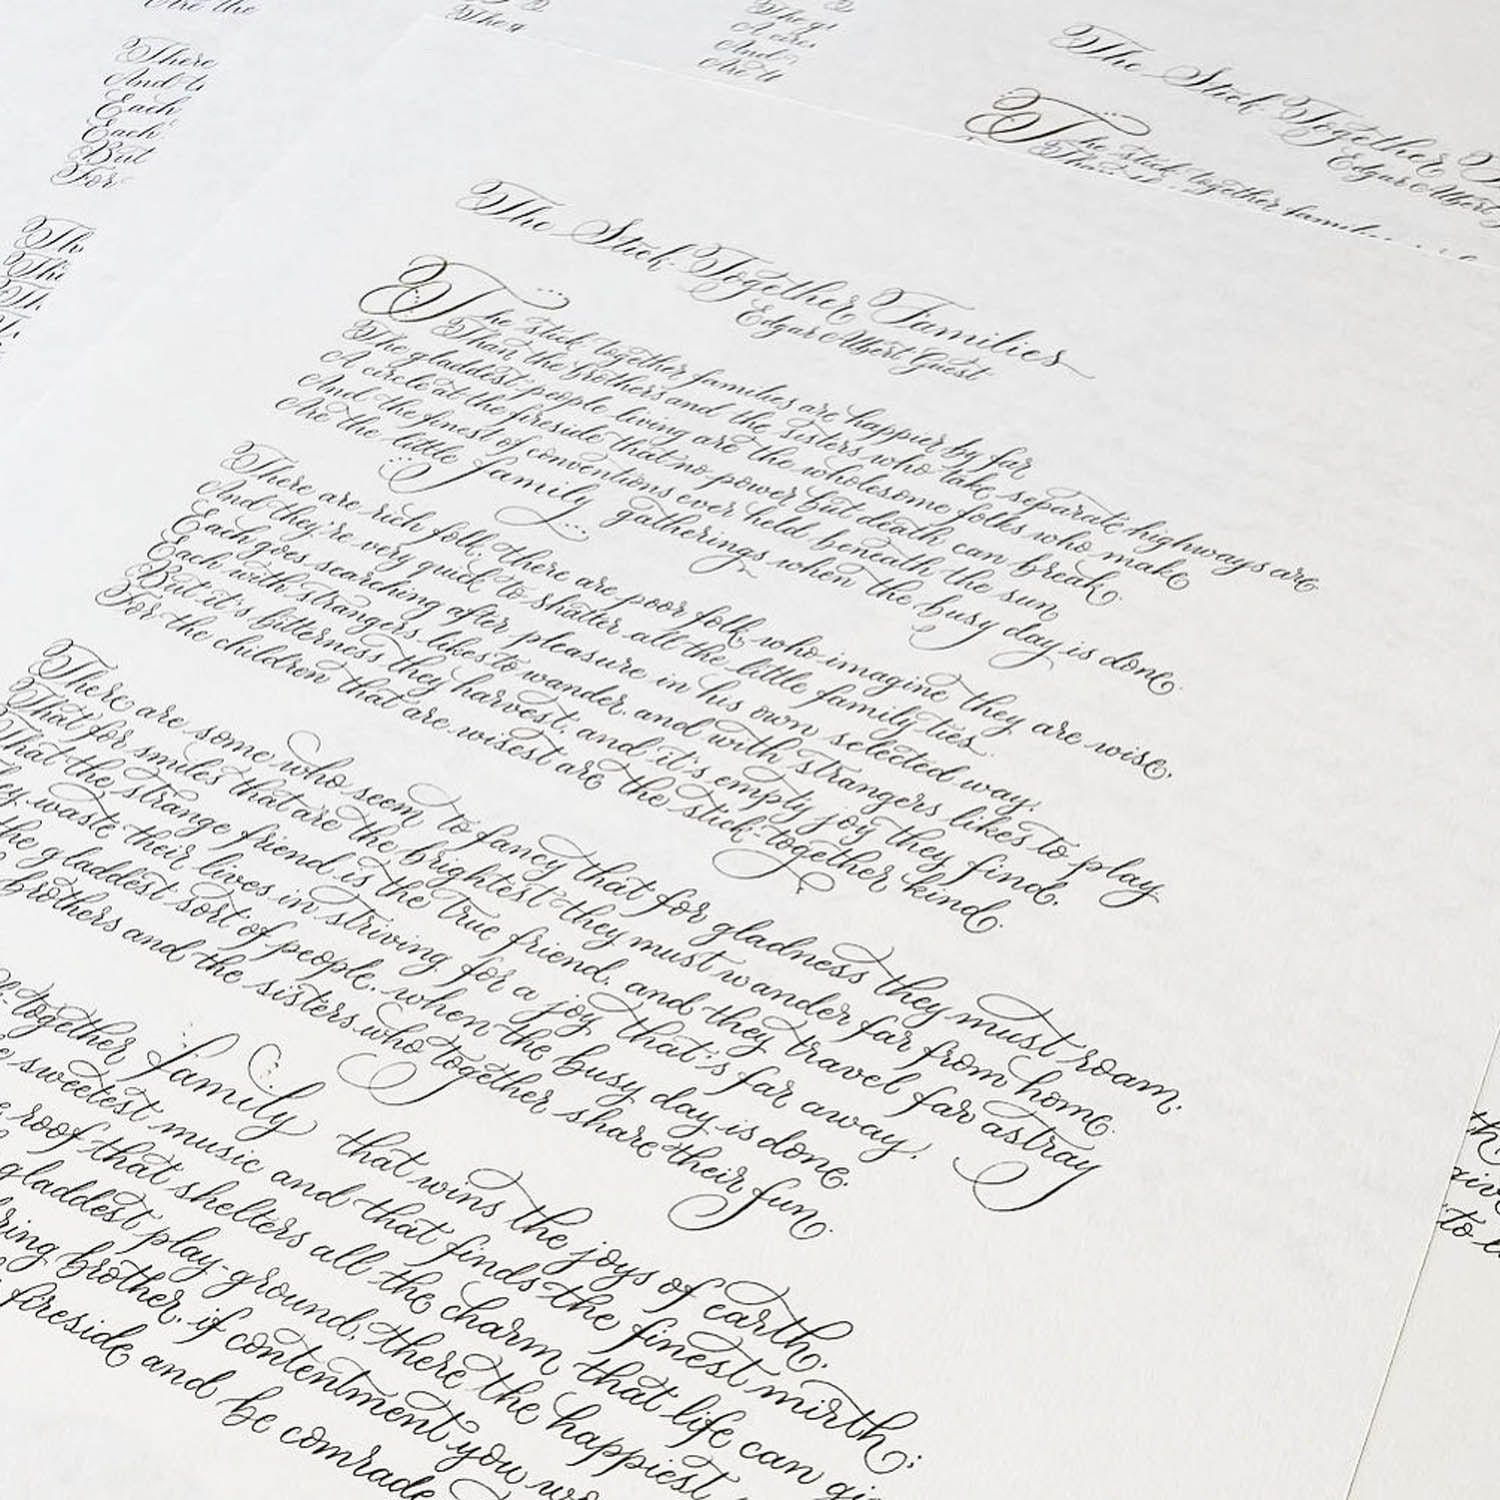 Are the
There
And t
Each
Each
But
For
The g
And
Are t
The Stick Together
Edgar Albert
The stick together
The Stick Together Families
Edgar Albert Guest
The stick together families are happier by far
Than the brothers and the sisters who take separate highways are.
The gladdest people living are the wholesome folks who make
A circle at the fireside that no power but death can break.
And the finest of conventions ever held beneath the sun
Are the little family gatherings when the busy day is done.
There are rich folk, there are poor folk, who imagine they are wise,
And they're very quick to shatter all the little family ties.
Each goes searching after pleasure in his own selected way,
Each with strangers likes to wander, and with strangers likes to play.
But it's bitterness they harvest, and it's empty joy they find,
For the children that are wisest are the stick-together kind.
There are some who seem to fancy that for gladness they must roam,
That for smiles that are the brightest they must wander far from home.
That the strange friend is the true friend, and they travel far astray
ey waste their lives in striving for a joy that's far away,
the gladdest sort of people, when the busy day is done,
brothers and the sisters who together share their fun.
together family that wins the joys of earth,
sweetest music and that finds the finest mirth;
roof that shelters all the charm that life can gi
gladdest play-ground, there the happiest
ring brother, if contentment you wo
fireside and be comrade